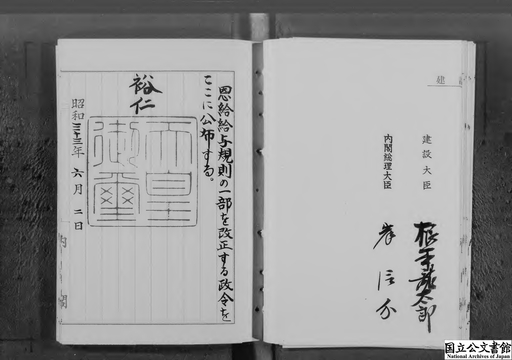 建
建設大臣
根本龍太郎
内閣総理大臣
岸信介
恩給給与規則の一部を改正する政令を
ここに公布する。
裕仁
天皇御璽
昭和三十三年六月二日
内閣
国立公文書館
National Archives of Japan